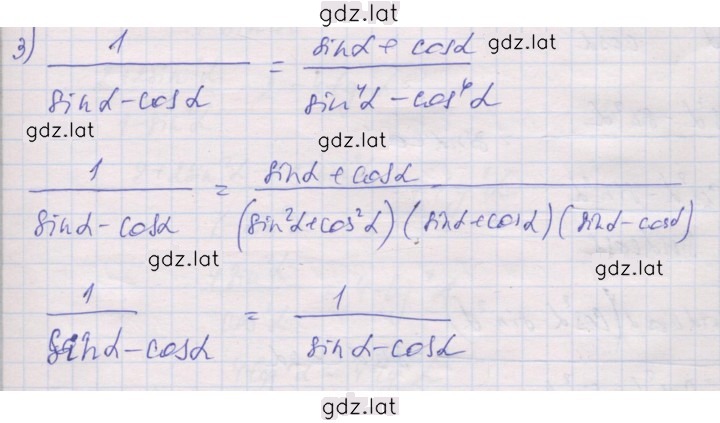 gdz.lat
3) 1 / (sinα - cosα) = (sinα + cosα) / (sin⁴α - cos⁴α) gdz.lat
gdz.lat
gdz.lat
1 / (sinα - cosα) = (sinα + cosα) / ((sin²α + cos²α)(sinα + cosα)(sinα - cosα))
gdz.lat
gdz.lat
1 / (sinα - cosα) = 1 / (sinα - cosα)
gdz.lat